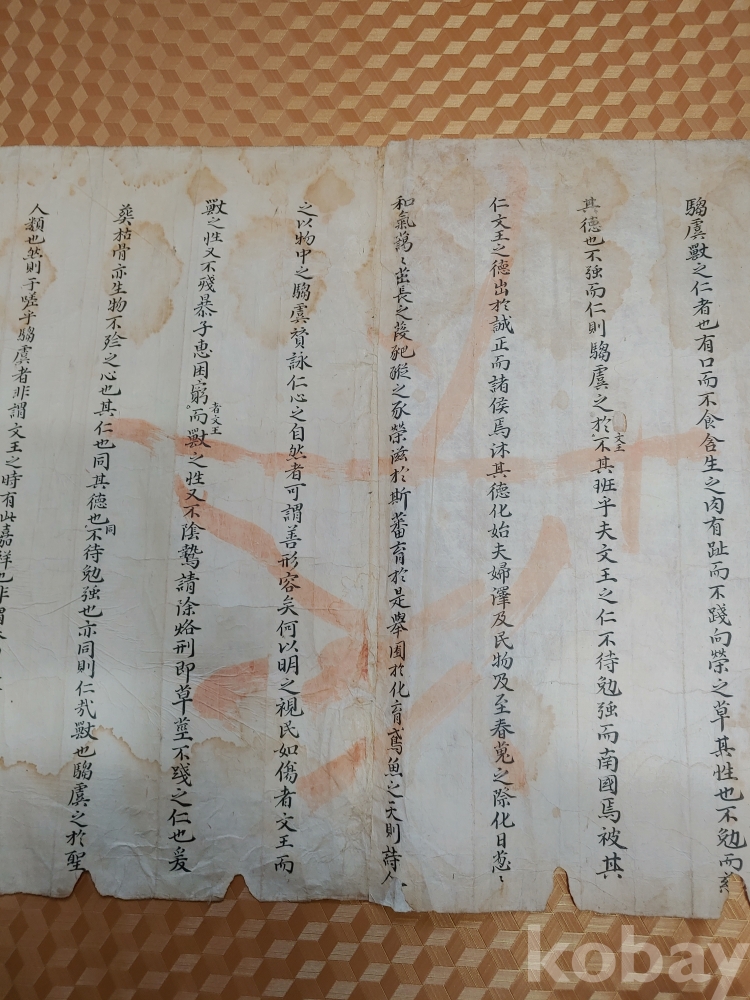 騶虞獸之仁者也有口而不食含生之肉有趾而不踐向榮之草其性也不勉而
其德也不强而仁則騶虞之於文王不其班乎夫文王之仁不待勉强而南國焉被其
仁文王之德出於誠正而諸侯焉沐其德化始夫婦澤及民物及至春蒐之際化日
和氣藹〻茁長之葭豝豵之豕榮滋於斯蕃育於是擧囿於化育鳶魚之天則詩人
之以物中之騶虞賁詠仁心之自然者可謂善形容矣何以明之視民如傷者文王而
獸之性又不殘暴子惠困窮者文王而獸之性又不陰騭請除烙刑即草莖不踐之仁也爰
葬枯骨亦生物不殄之心也其仁也同其德也同不待勉强也亦同則仁哉獸也騶虞之於聖
人類也然則于嗟乎騶虞者非謂文王之時有此嘉祥也非謂
kobay